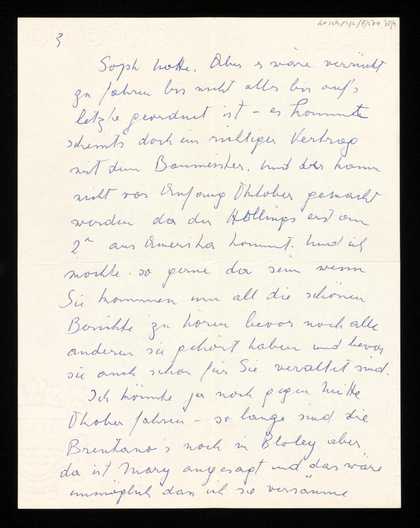 3
Soph hatte. Aber es wäre verrückt
zu fahren bis nicht alles bis auf's
letzte geordnet ist – es kommt
scheints doch ein richtiger Vertrag
mit dem Baumeister. Und der kann
nicht vor Anfang Oktober gemacht
werden da der Hollings erst am
2n aus Amerika kommt. Und ich
möchte so gerne da sein wenn
Sie kommen um all die schönen
Berichte zu hören bevor noch alle
anderen sie gehört haben und bevor
sie auch schon für Sie veraltet sind.
Ich könnte ja noch gegen Mitte
Oktober fahren – so lange sind die
Brentano's noch in aber
da ist Mary angesagt und das wäre
unmöglich dass ich sie versäume